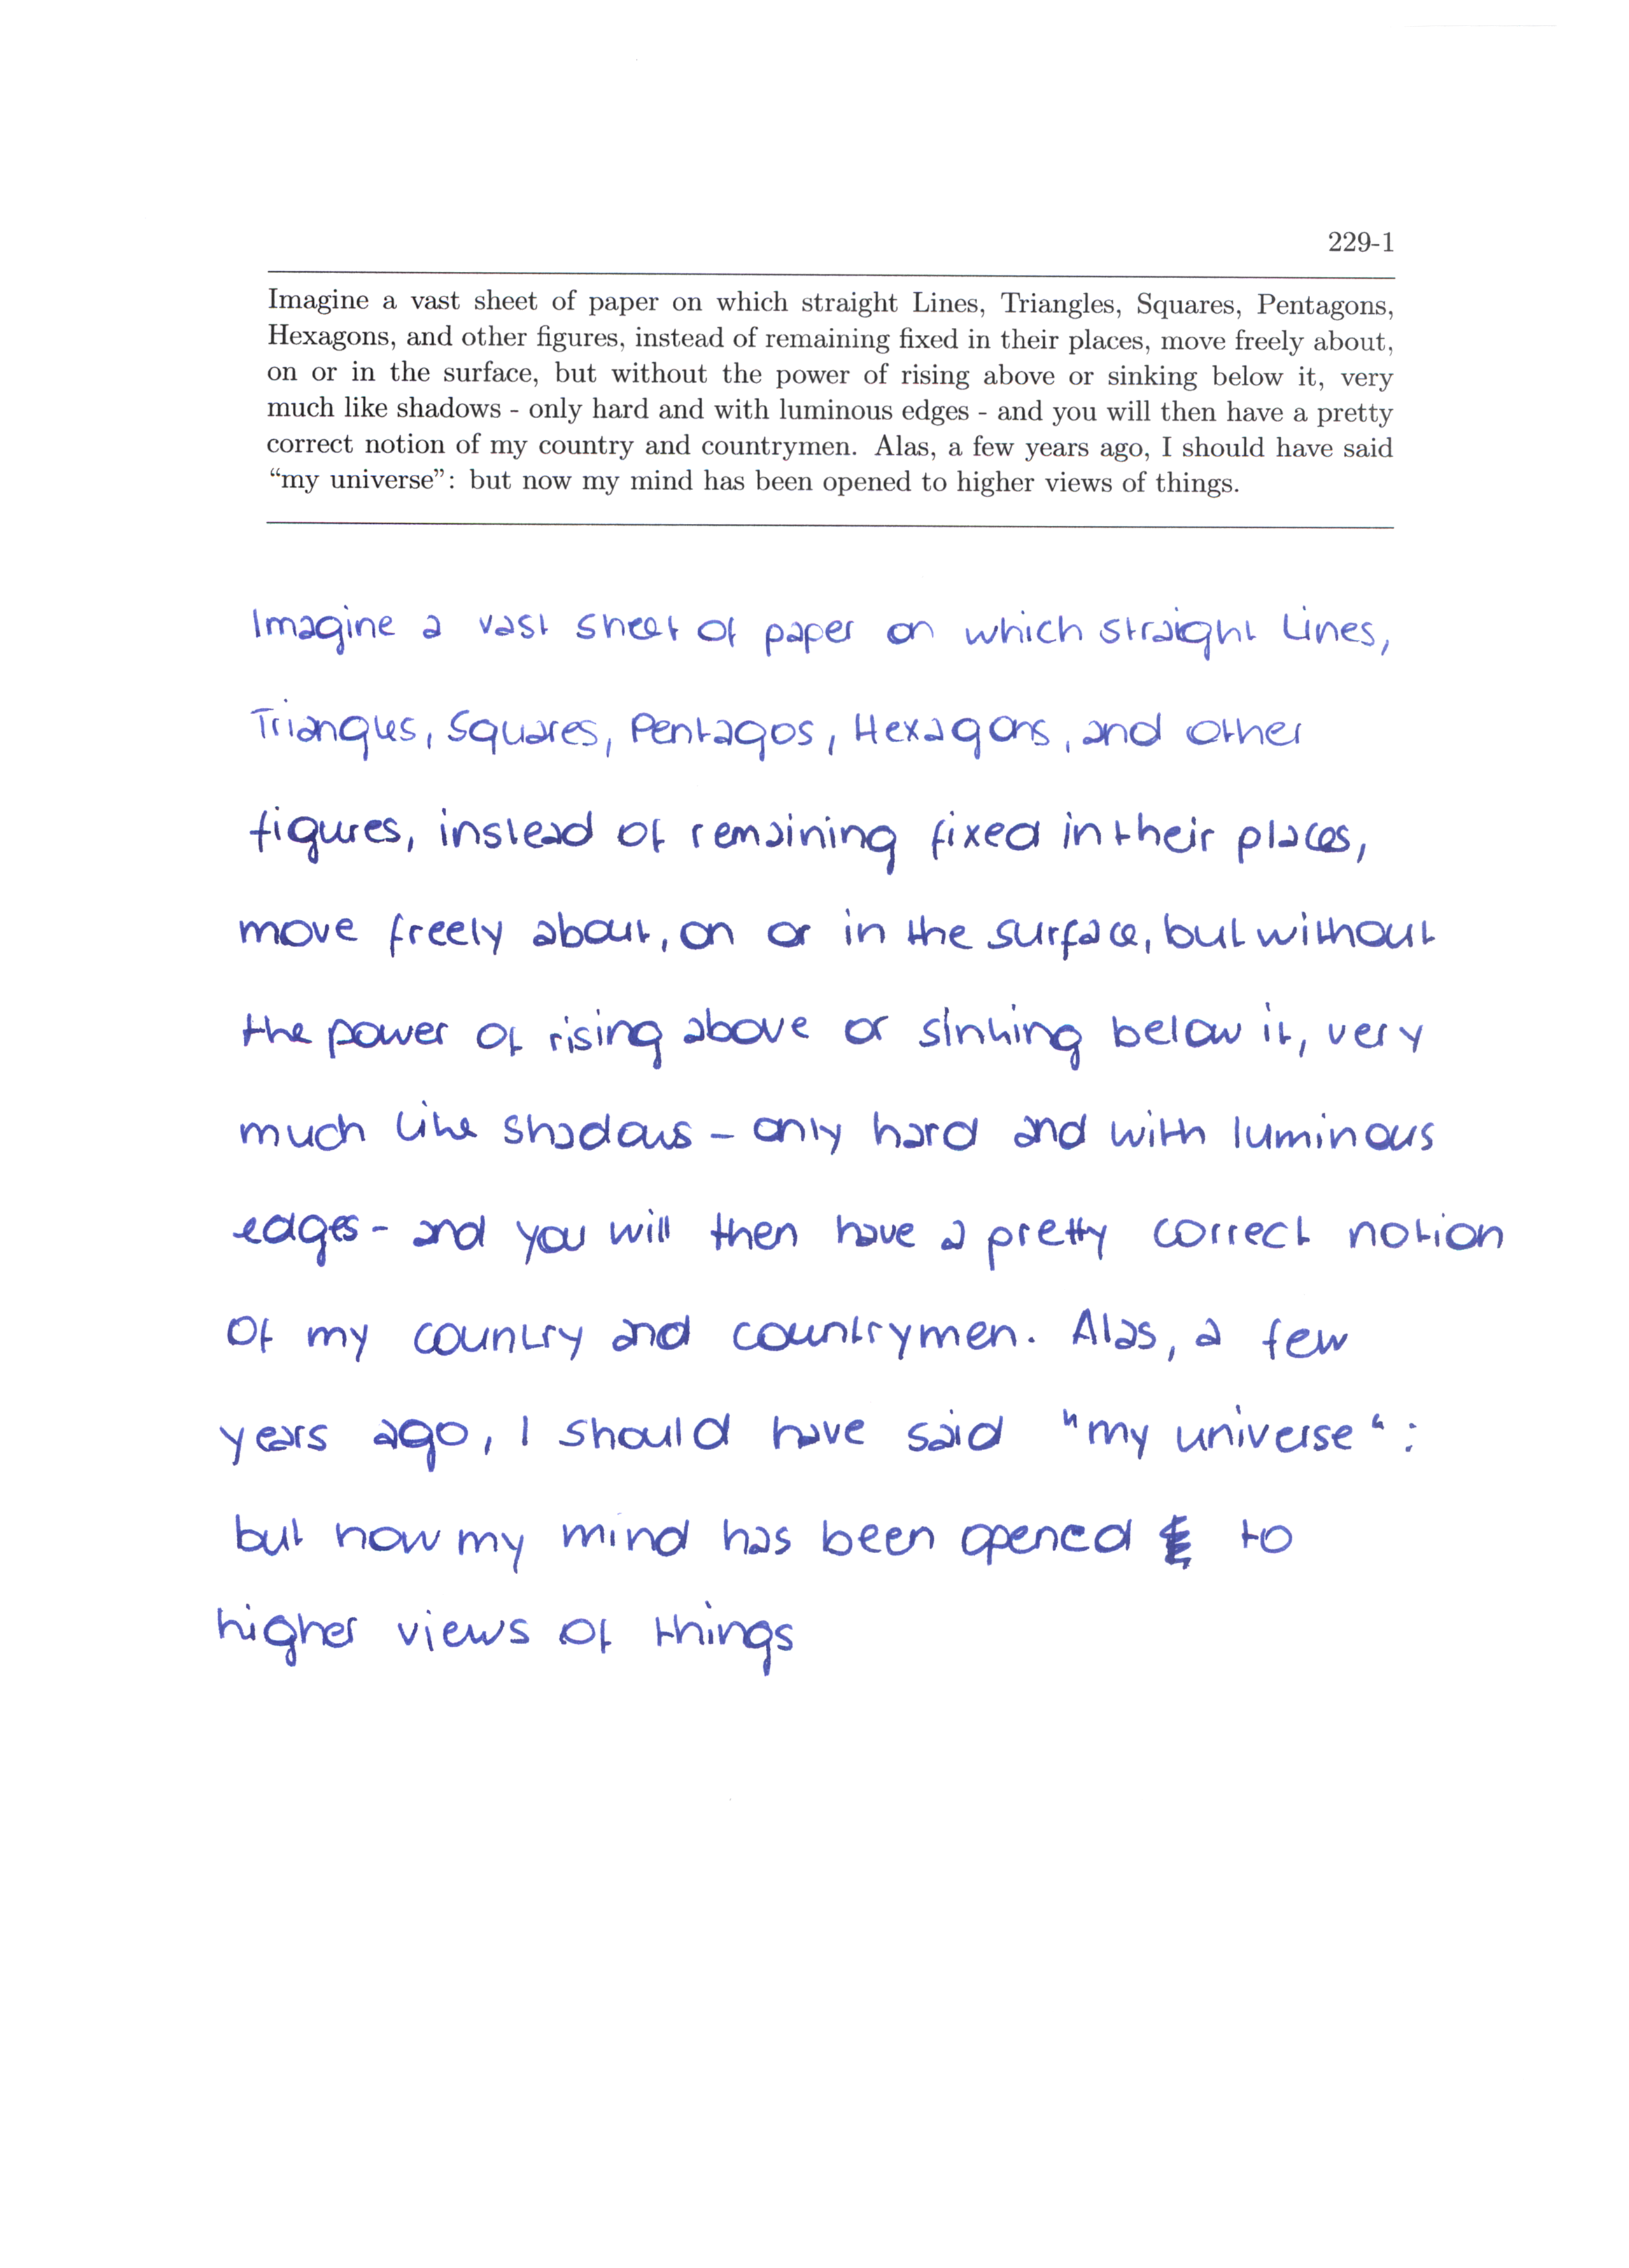 229-1
Imagine a vast sheet of paper on which straight Lines, Triangles, Squares, Pentagons,
Hexagons, and other figures, instead of remaining fixed in their places, move freely about,
on or in the surface, but without the power of rising above or sinking below it, very
much like shadows - only hard and with luminous edges - and you will then have a pretty
correct notion of my country and countrymen. Alas, a few years ago, I should have said
“my universe”: but now my mind has been opened to higher views of things.
Imagine a vast sheet of paper on which straight Lines,
Triangles, Squares, Pentagos, Hexagons, and other
figures, instead of remaining fixed in their places,
move freely about, on or in the surface, but without
the power of rising above or sinking below it, very
much like shadows - only hard and with luminous
edges - and you will then have a pretty correct notion
of my country and countrymen. Alas, a few
years ago, I should have said "my universe":
but now my mind has been opened to
higher views of things